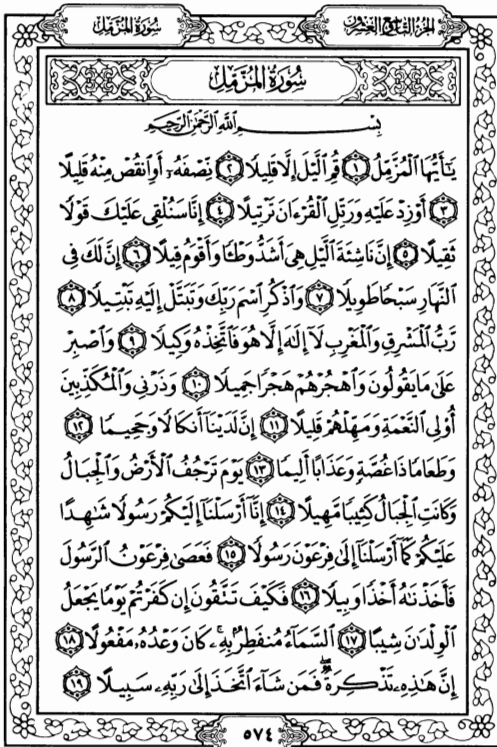 الجزء التاسع والعشرون
سورة المزمل
سُورَةُ المُزَّمِّل
بِسْمِ اللَّهِ الرَّحْمَٰنِ الرَّحِيمِ
يَٰٓأَيُّهَا ٱلْمُزَّمِّلُ ۝١ قُمِ ٱلَّيْلَ إِلَّا قَلِيلًا ۝٢ نِّصْفَهُۥٓ أَوِ ٱنقُصْ مِنْهُ قَلِيلًا
۝٣ أَوْ زِدْ عَلَيْهِ وَرَتِّلِ ٱلْقُرْءَانَ تَرْتِيلًا ۝٤ إِنَّا سَنُلْقِى عَلَيْكَ قَوْلًا
ثَقِيلًا ۝٥ إِنَّ نَاشِئَةَ ٱلَّيْلِ هِىَ أَشَدُّ وَطْـًٔا وَأَقْوَمُ قِيلًا ۝٦ إِنَّ لَكَ فِى
ٱلنَّهَارِ سَبْحًا طَوِيلًا ۝٧ وَٱذْكُرِ ٱسْمَ رَبِّكَ وَتَبَتَّلْ إِلَيْهِ تَبْتِيلًا ۝٨
رَّبُّ ٱلْمَشْرِقِ وَٱلْمَغْرِبِ لَآ إِلَٰهَ إِلَّا هُوَ فَٱتَّخِذْهُ وَكِيلًا ۝٩ وَٱصْبِرْ
عَلَىٰ مَا يَقُولُونَ وَٱهْجُرْهُمْ هَجْرًا جَمِيلًا ۝١٠ وَذَرْنِى وَٱلْمُكَذِّبِينَ
أُو۟لِى ٱلنَّعْمَةِ وَمَهِّلْهُمْ قَلِيلًا ۝١١ إِنَّ لَدَيْنَآ أَنكَالًا وَجَحِيمًا ۝١٢
وَطَعَامًا ذَا غُصَّةٍ وَعَذَابًا أَلِيمًا ۝١٣ يَوْمَ تَرْجُفُ ٱلْأَرْضُ وَٱلْجِبَالُ
وَكَانَتِ ٱلْجِبَالُ كَثِيبًا مَّهِيلًا ۝١٤ إِنَّآ أَرْسَلْنَآ إِلَيْكُمْ رَسُولًا شَٰهِدًا
عَلَيْكُمْ كَمَآ أَرْسَلْنَآ إِلَىٰ فِرْعَوْنَ رَسُولًا ۝١٥ فَعَصَىٰ فِرْعَوْنُ ٱلرَّسُولَ
فَأَخَذْنَٰهُ أَخْذًا وَبِيلًا ۝١٦ فَكَيْفَ تَتَّقُونَ إِن كَفَرْتُمْ يَوْمًا يَجْعَلُ
ٱلْوِلْدَٰنَ شِيبًا ۝١٧ ٱلسَّمَآءُ مُنفَطِرٌۢ بِهِۦ ۚ كَانَ وَعْدُهُۥ مَفْعُولًا ۝١٨
إِنَّ هَٰذِهِۦ تَذْكِرَةٌ ۖ فَمَن شَآءَ ٱتَّخَذَ إِلَىٰ رَبِّهِۦ سَبِيلًا ۝١٩
٥٧٤